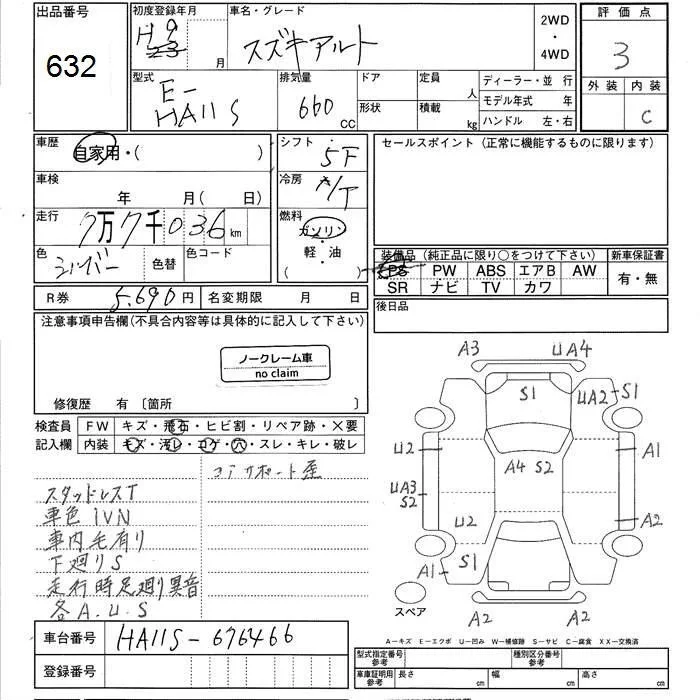 出品番号
632
初度登録年月
H9
23
月
車名・グレード
スズキアルト
2WD
・
4WD
評価点
3
外装 内装
C
型式
E-
HA11S
排気量
660
CC
ドア
形状
定員
人
積載
kg
ディーラー・並 行
モデル年式 年
ハンドル 左・右
車歴
自家用・( )
シフト
5F
セールスポイント (正常に機能するものに限ります)
車検
年 月( 日)
冷房
A/T
走行
7万7千036km
燃料
ガソリン
軽・油
( )
色
シルバー
色替
色コード
装備品 (純正品に限り○をつけて下さい)
新車保証書
PS PW ABS エアB AW
有・無
SR ナビ TV カワ
R券
5,690円
名変期限 月 日
後日品
注意事項申告欄(不具合内容等は具体的に記入して下さい)
ノークレーム車
no claim
修復歴 有 〔箇所 〕
検査員
記入欄
FW キズ・飛石・ヒビ割・リペア跡・×要
内装 キズ・汚レ・コゲ・穴・スレ・キレ・破レ
コアサポート歪
スタッドレスT
車色IVN
車内毛有り
下廻りS
走行時足廻り異音
各A.U.S
A3 UA4
S1 UA2 S1
U2 A1
A4 S2
UA3
S2
U2 A2
A1 S1
スペア
A2 A2
A−キズ E−エクボ U−凹み W−補修跡 S−サビ C−腐食 XX−交換済
車台番号
HA11S-676466
登録番号
型式指定番号
参考
種別区分番号
参考
車庫証明用
参考
長さ
cm
幅
cm
高さ
cm